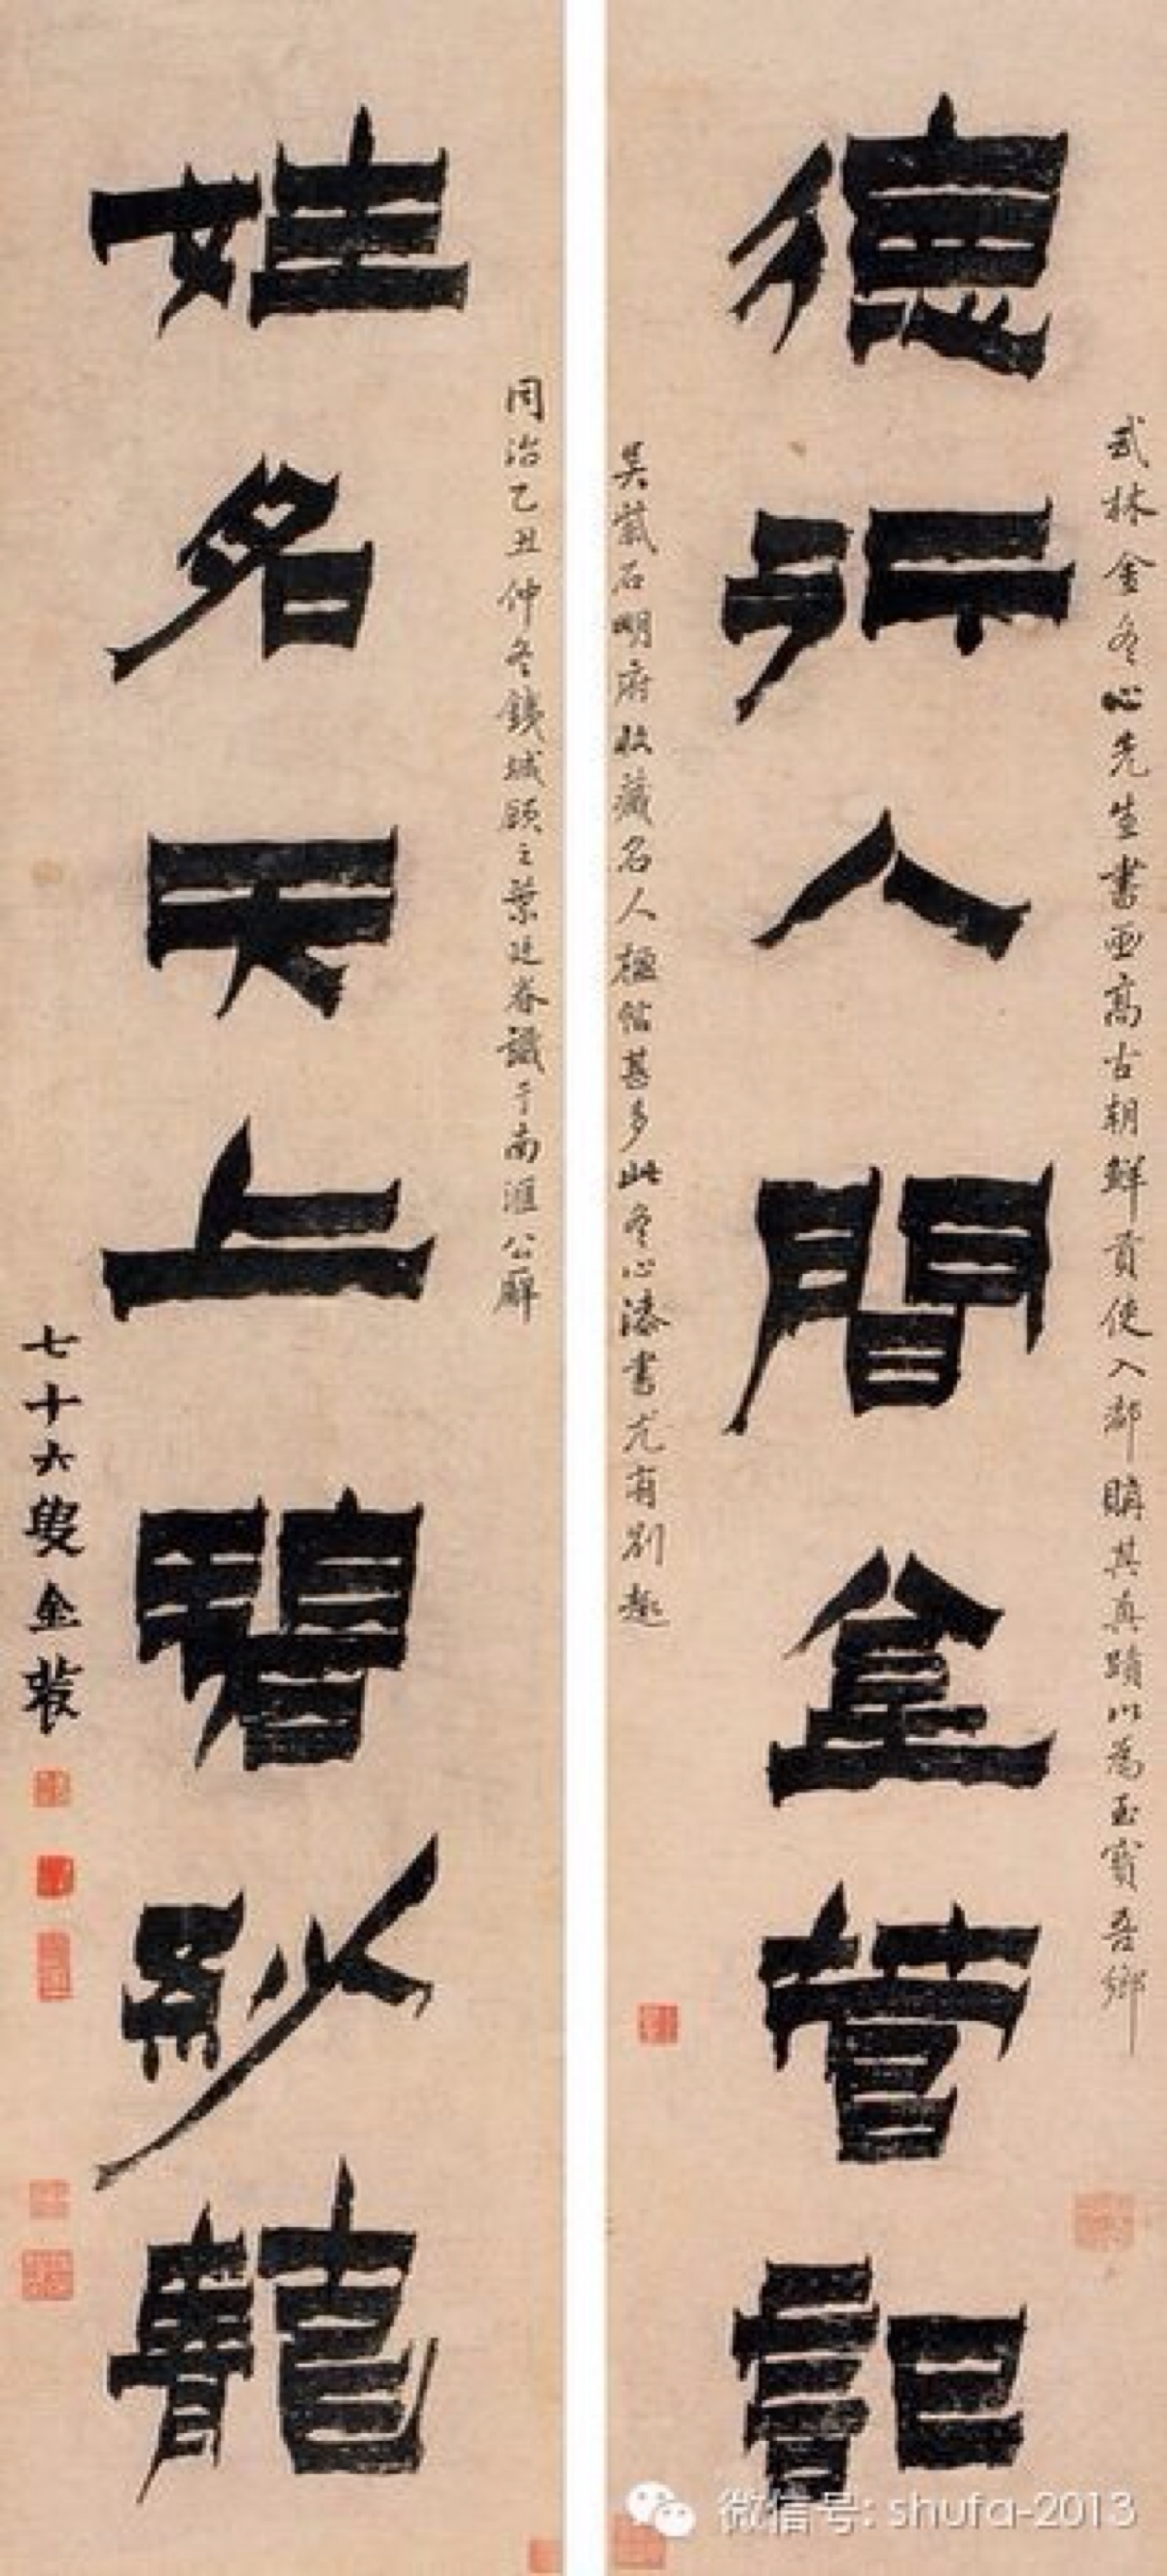 德行人間金管記
姓名天上碧紗籠
武林金冬心先生書画高古朝鮮貢使入都購其真蹟以為至寶吾鄉
吴葘石明府收藏名人楹帖甚多此冬心漆書尤有別趣
同治乙丑仲冬錢城顾之葉廷眷識于南滙公廨
七十六叟金農
微信号: shufa-2013